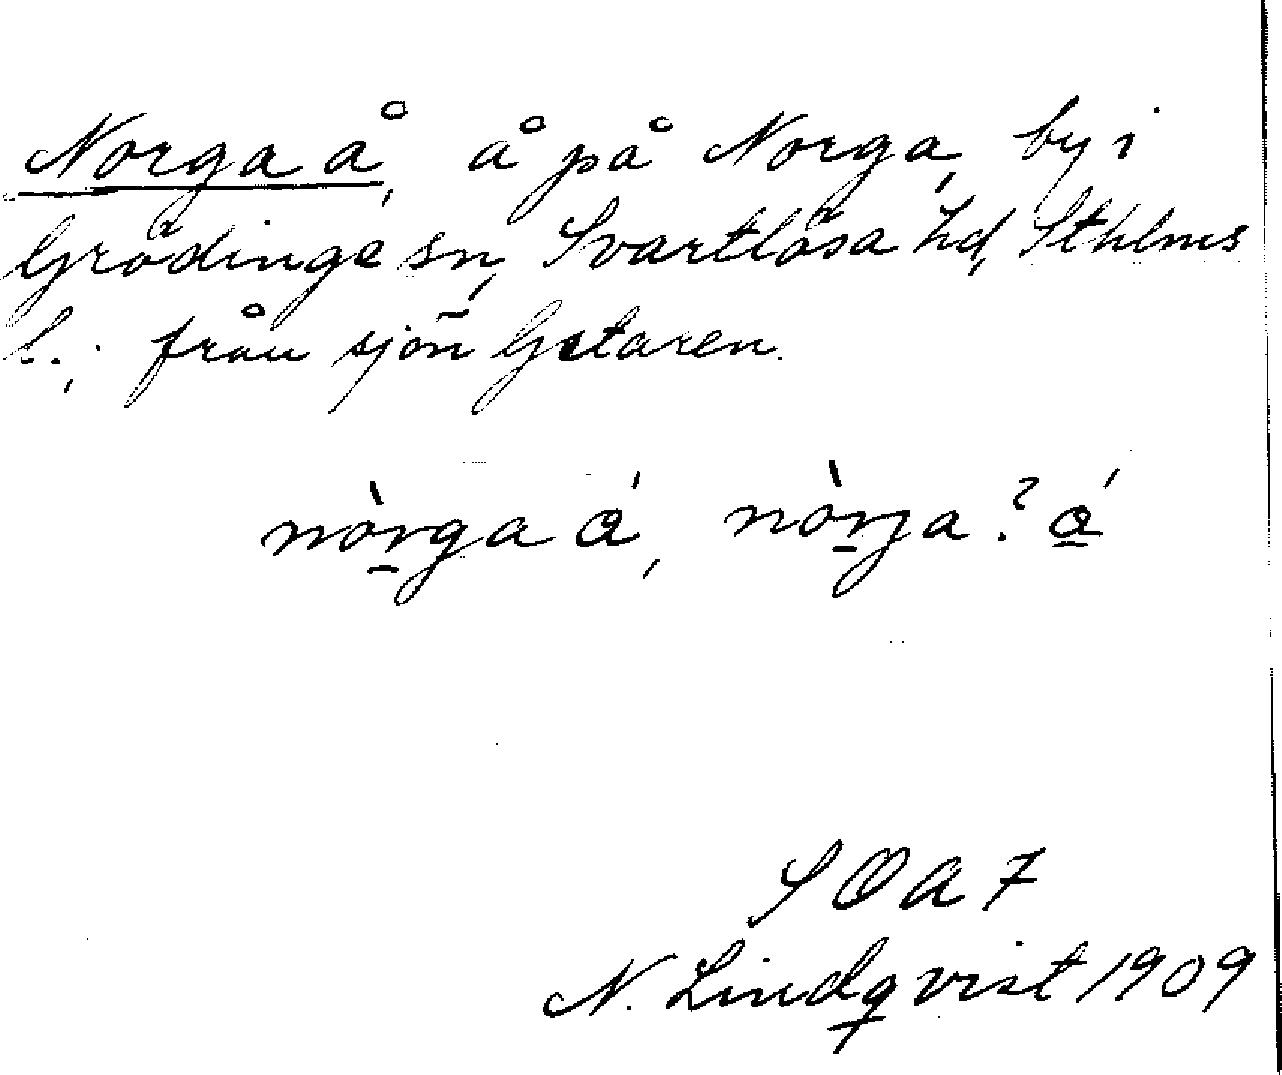 Norga å, å på Norga, by i
Grödinge sn, Svartlösa hd, Sthlms
l.; från sjön Getaren.
nòrga ǻ, nòrja? ǻ
SOA 7
N. Lindqvist 1909